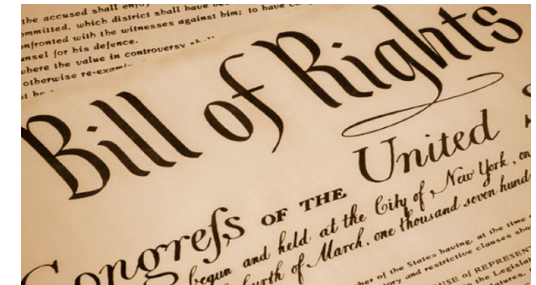 the accused shall enjoy
ommitted, which district shall have
onfronted with the witnesses against him; to have
unsel for his defence.
where the value in controversy
otherwise re-exami
Bill of Rights
United
Congreſs OF THE
begun and held at the City of New York, on
of March, one thousand seven hund
of the States having, at the time
and restrictive clauses
OF REPRESENT